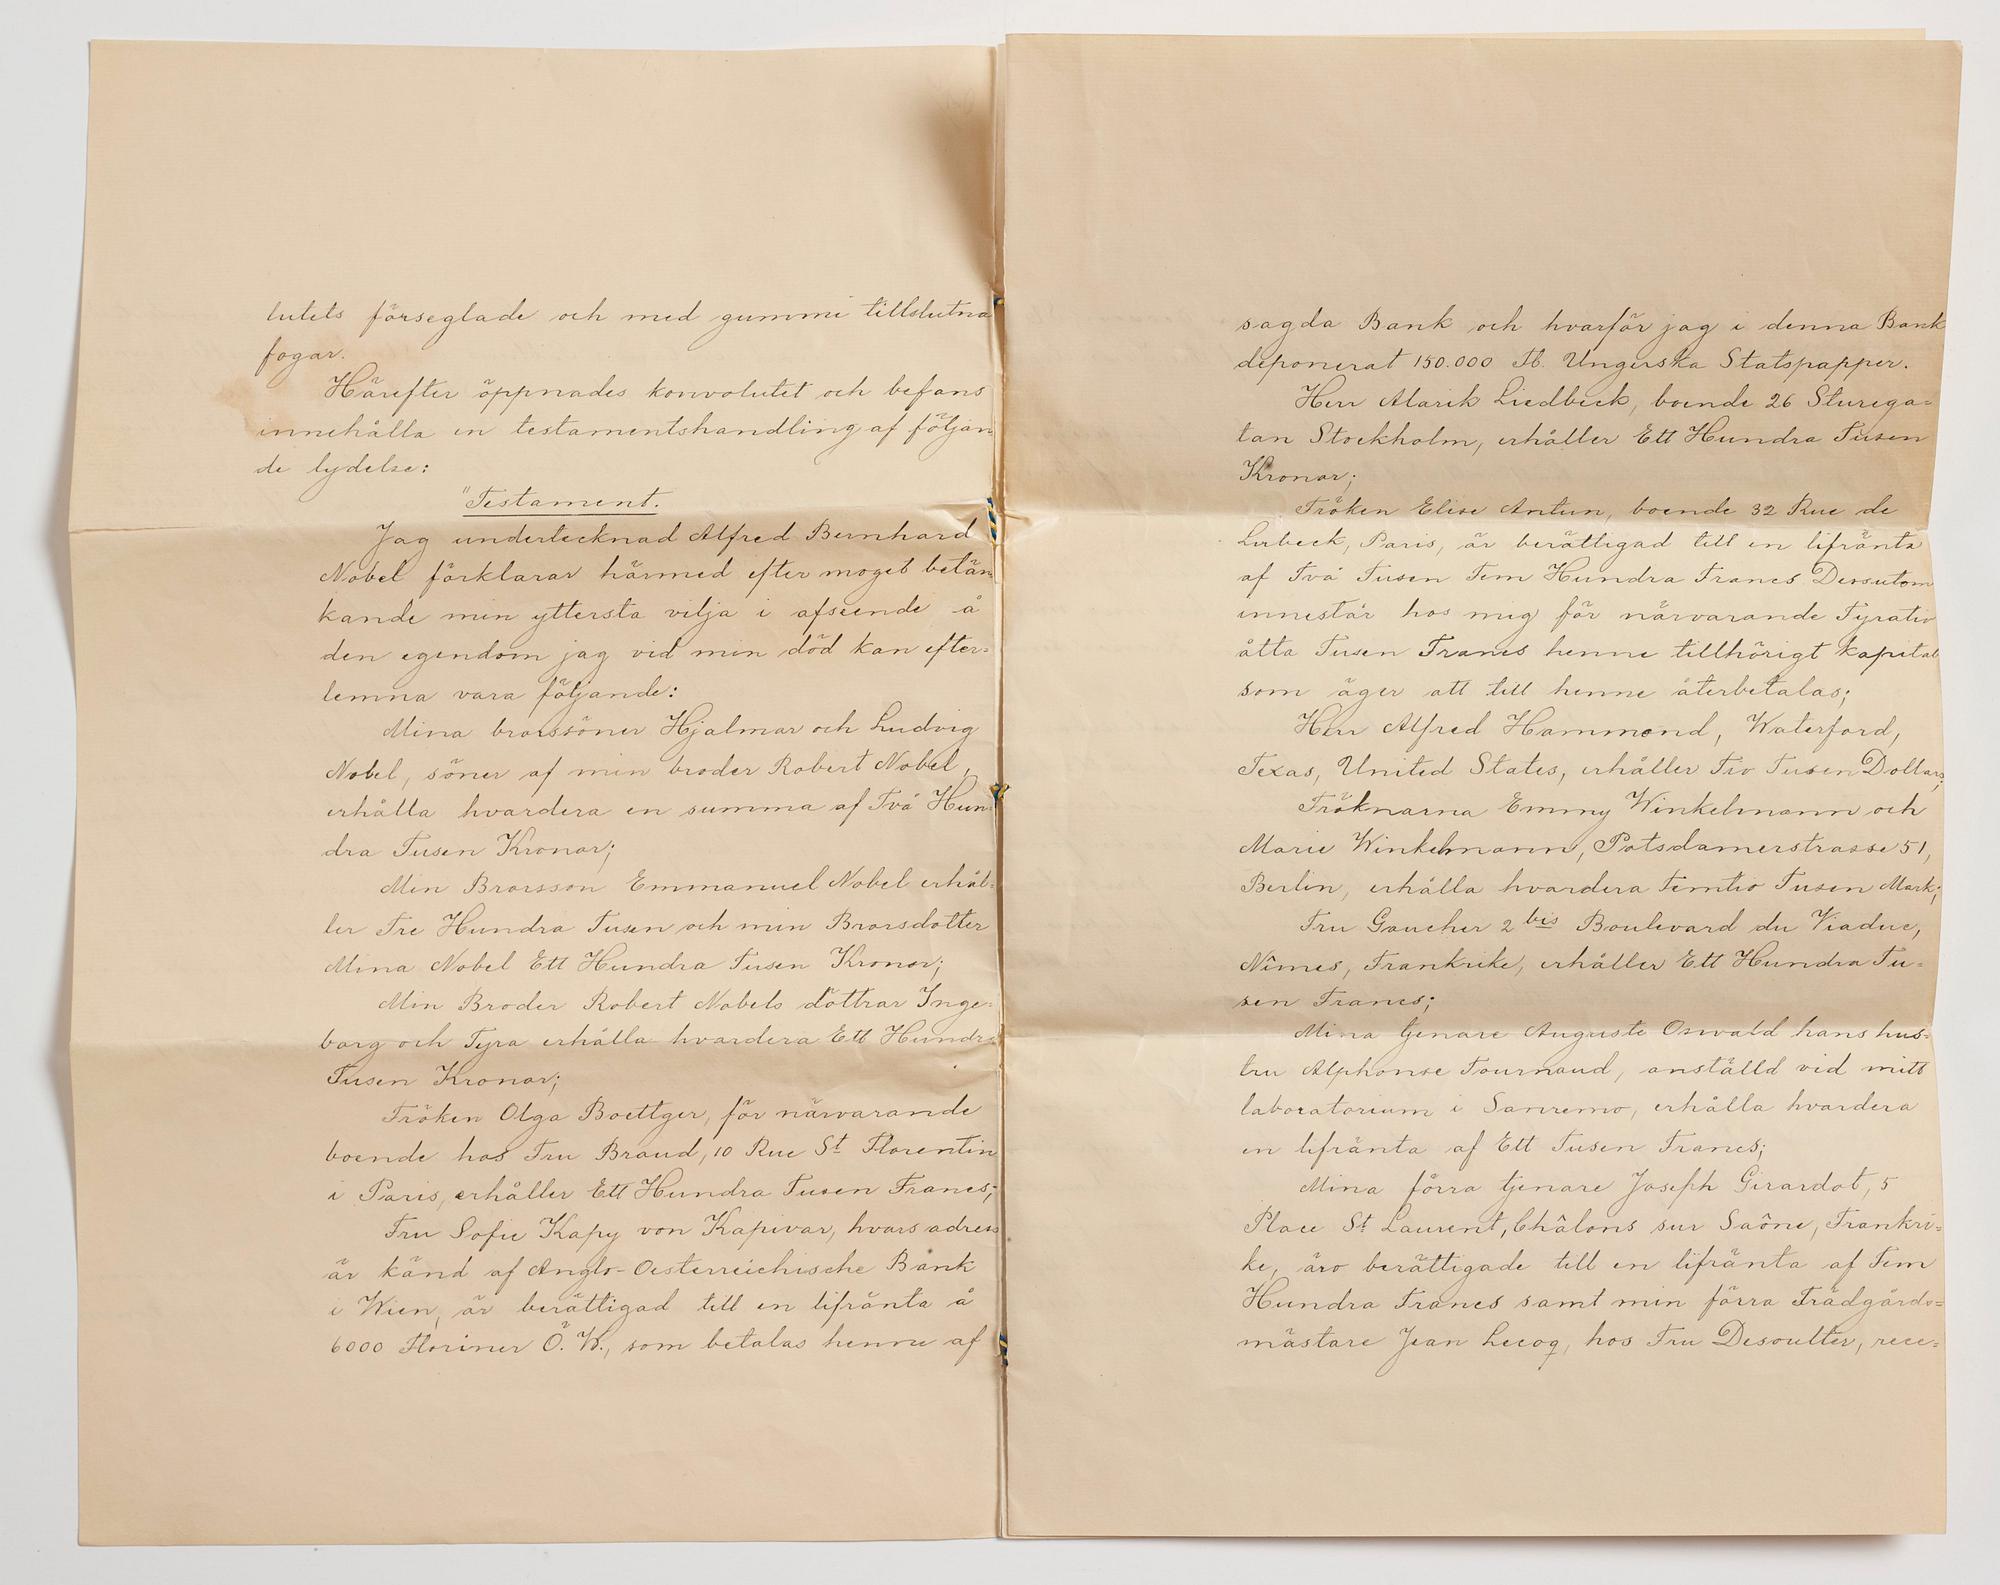 lutets förseglade och med gummi tillslutna
fogar.
Härefter öppnades konvolutet och befans
innehålla en testamentshandling af följan
de lydelse:
"Testament.
Jag undertecknad Alfred Bernhard
Nobel förklarar härmed efter moget betän
kande min yttersta vilja i afseende å
den egendom jag vid min död kan efter=
lemna vara följande:
Mina brorssöner Hjalmar och Ludvig
Nobel, söner af min broder Robert Nobel,
erhålla hvardera en summa af Två Hun
dra Tusen Kronor;
Min Brorsson Emmanuel Nobel erhål=
ler Tre Hundra Tusen och min Brorsdotter
Mina Nobel Ett Hundra Tusen Kronor;
Min Broder Robert Nobels döttrar Inge=
borg och Tyra erhålla hvardera Ett Hundra
Tusen Kronor;
Fröken Olga Boettger, för närvarande
boende hos Fru Brand, 10 Rue St Florentin
i Paris, erhåller Ett Hundra Tusen Francs;
Fru Sofie Kapy von Kapivar, hvars adress
är känd af Anglo-Oesterreichische Bank
i Wien, är berättigad till en lifränta å
6000 Floriner Ö. W., som betalas henne af
sagda Bank och hvarför jag i denna Bank
deponerat 150.000 Fl. Ungerska Statspapper.
Herr Alarik Liedbeck, boende 26 Sturega=
tan Stockholm, erhåller Ett Hundra Tusen
Kronor;
Fröken Elise Antun, boende 32 Rue de
Lubeck, Paris, är berättigad till en lifränta
af Två Tusen Fem Hundra Francs Dessutom
innestår hos mig för närvarande Fyratio
åtta Tusen Francs henne tillhörigt kapital
som äger att till henne återbetalas;
Herr Alfred Hammond, Waterford,
Texas, United States, erhåller Tio Tusen Dollars;
Fröknarna Emmy Winkelmann och
Marie Winkelmann, Potsdamerstrasse 51,
Berlin, erhålla hvardera Femtio Tusen Mark;
Fru Gaucher 2 bis Boulevard du Viaduc,
Nîmes, Frankrike, erhåller Ett Hundra Tu=
sen Francs;
Mina tjenare Auguste Oswald hans hus=
tru Alphonse Tournaud, anställd vid mitt
laboratorium i Sanremo, erhålla hvardera
en lifränta af Ett Tusen Francs;
Mina förra tjenare Joseph Girardot, 5
Place St Laurent, Châlons sur Saône, Frankri=
ke, äro berättigade till en lifränta af Fem
Hundra Francs samt min förra Trädgårds=
mästare Jean Lecoq, hos Fru Desoutter, rece=